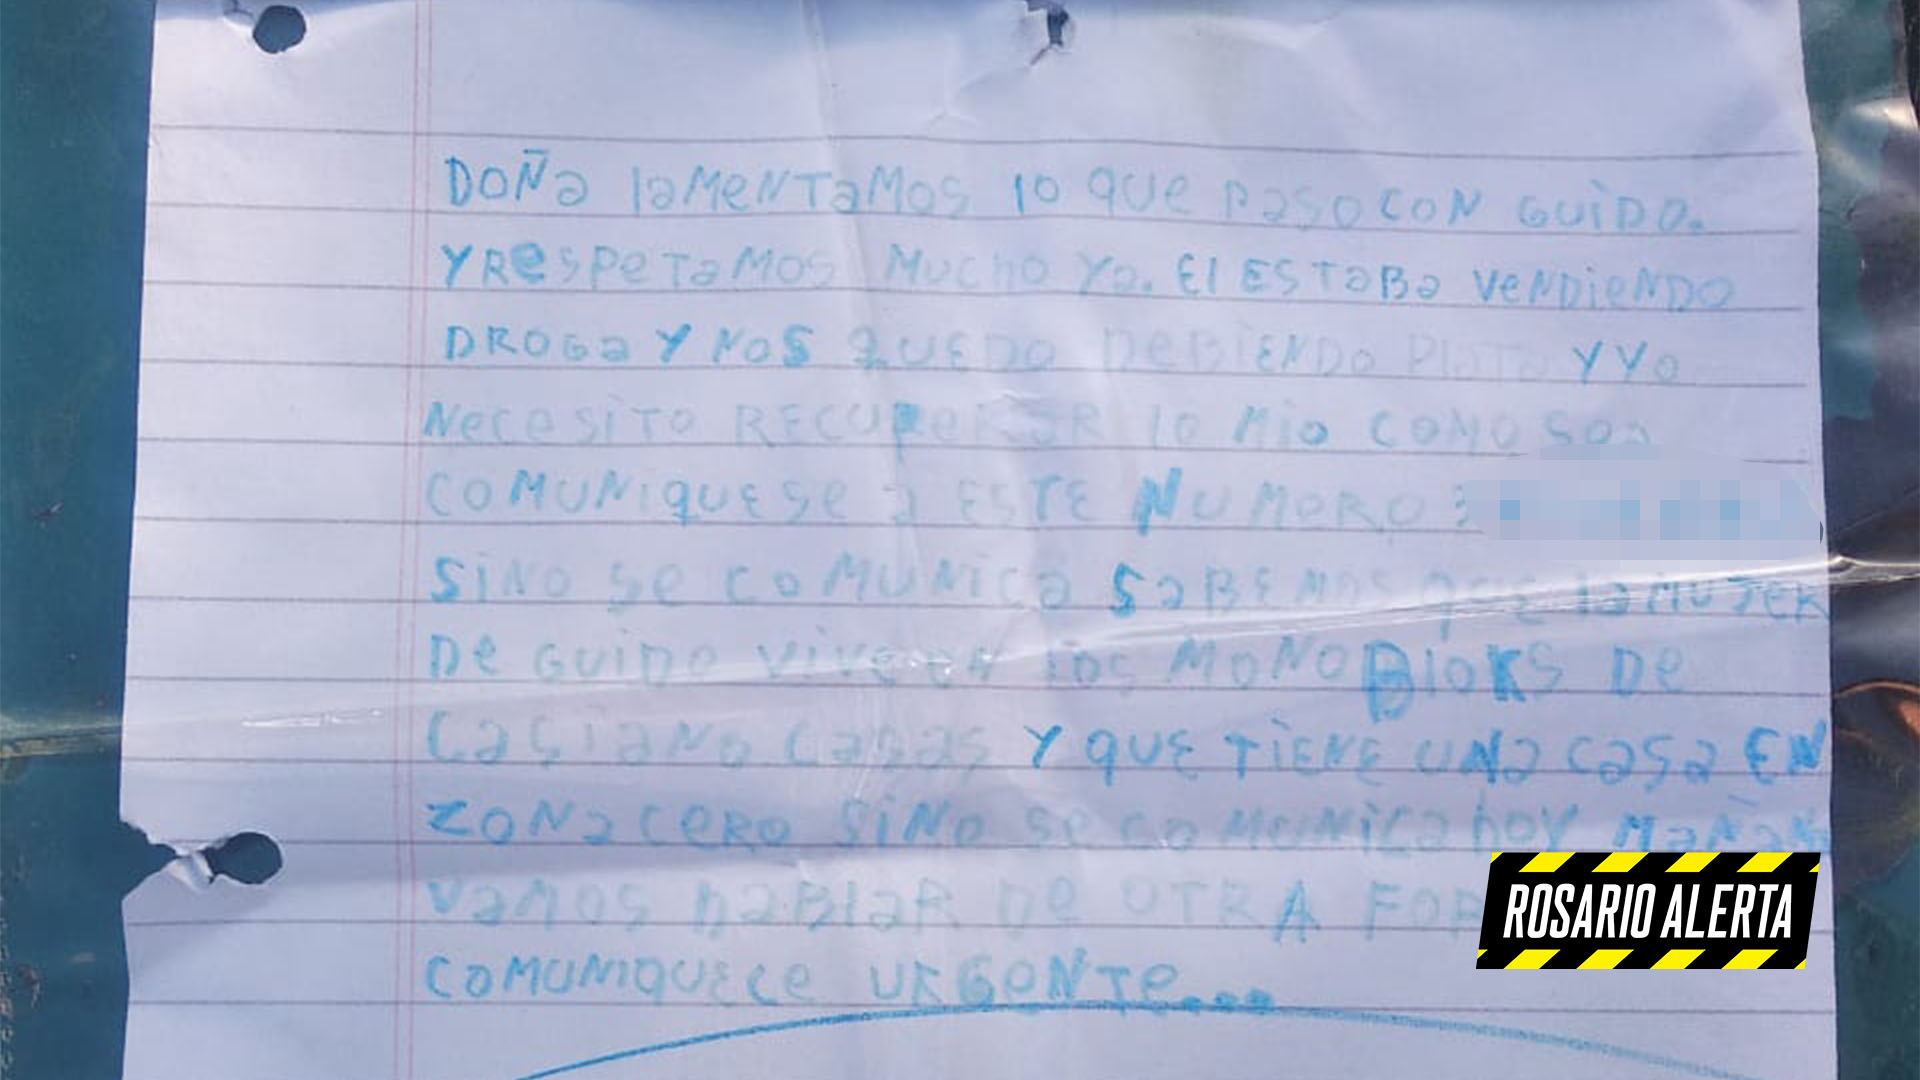 DOÑa laMeNTaMos lo que Paso CON GUiDO.
Y ResPeTaMos Mucho Ya. El ESTaBa VeNDieNDO
DROGa Y NOS QUEDO DeBiENDo PlaTa Y Yo
NeceSiTo RECUPeRaR lo Mio COMO Sea
COMUNiqUESe a ESTE NUMeRO 3
SiNO Se COMUNica SaBEMOS qUE la MUJeR
De GUiDO ViVe eN los MONOBloKS De
CaSiaNO CaSaS Y QUE TiENE UNa CaSa EN
ZONa CeRO SiNO Se COMUNiCa hoy MaÑaN
VaMOS haBlaR De OTRA FOR
COMUNiQUECe URGeNTe...
ROSARIO ALERTA